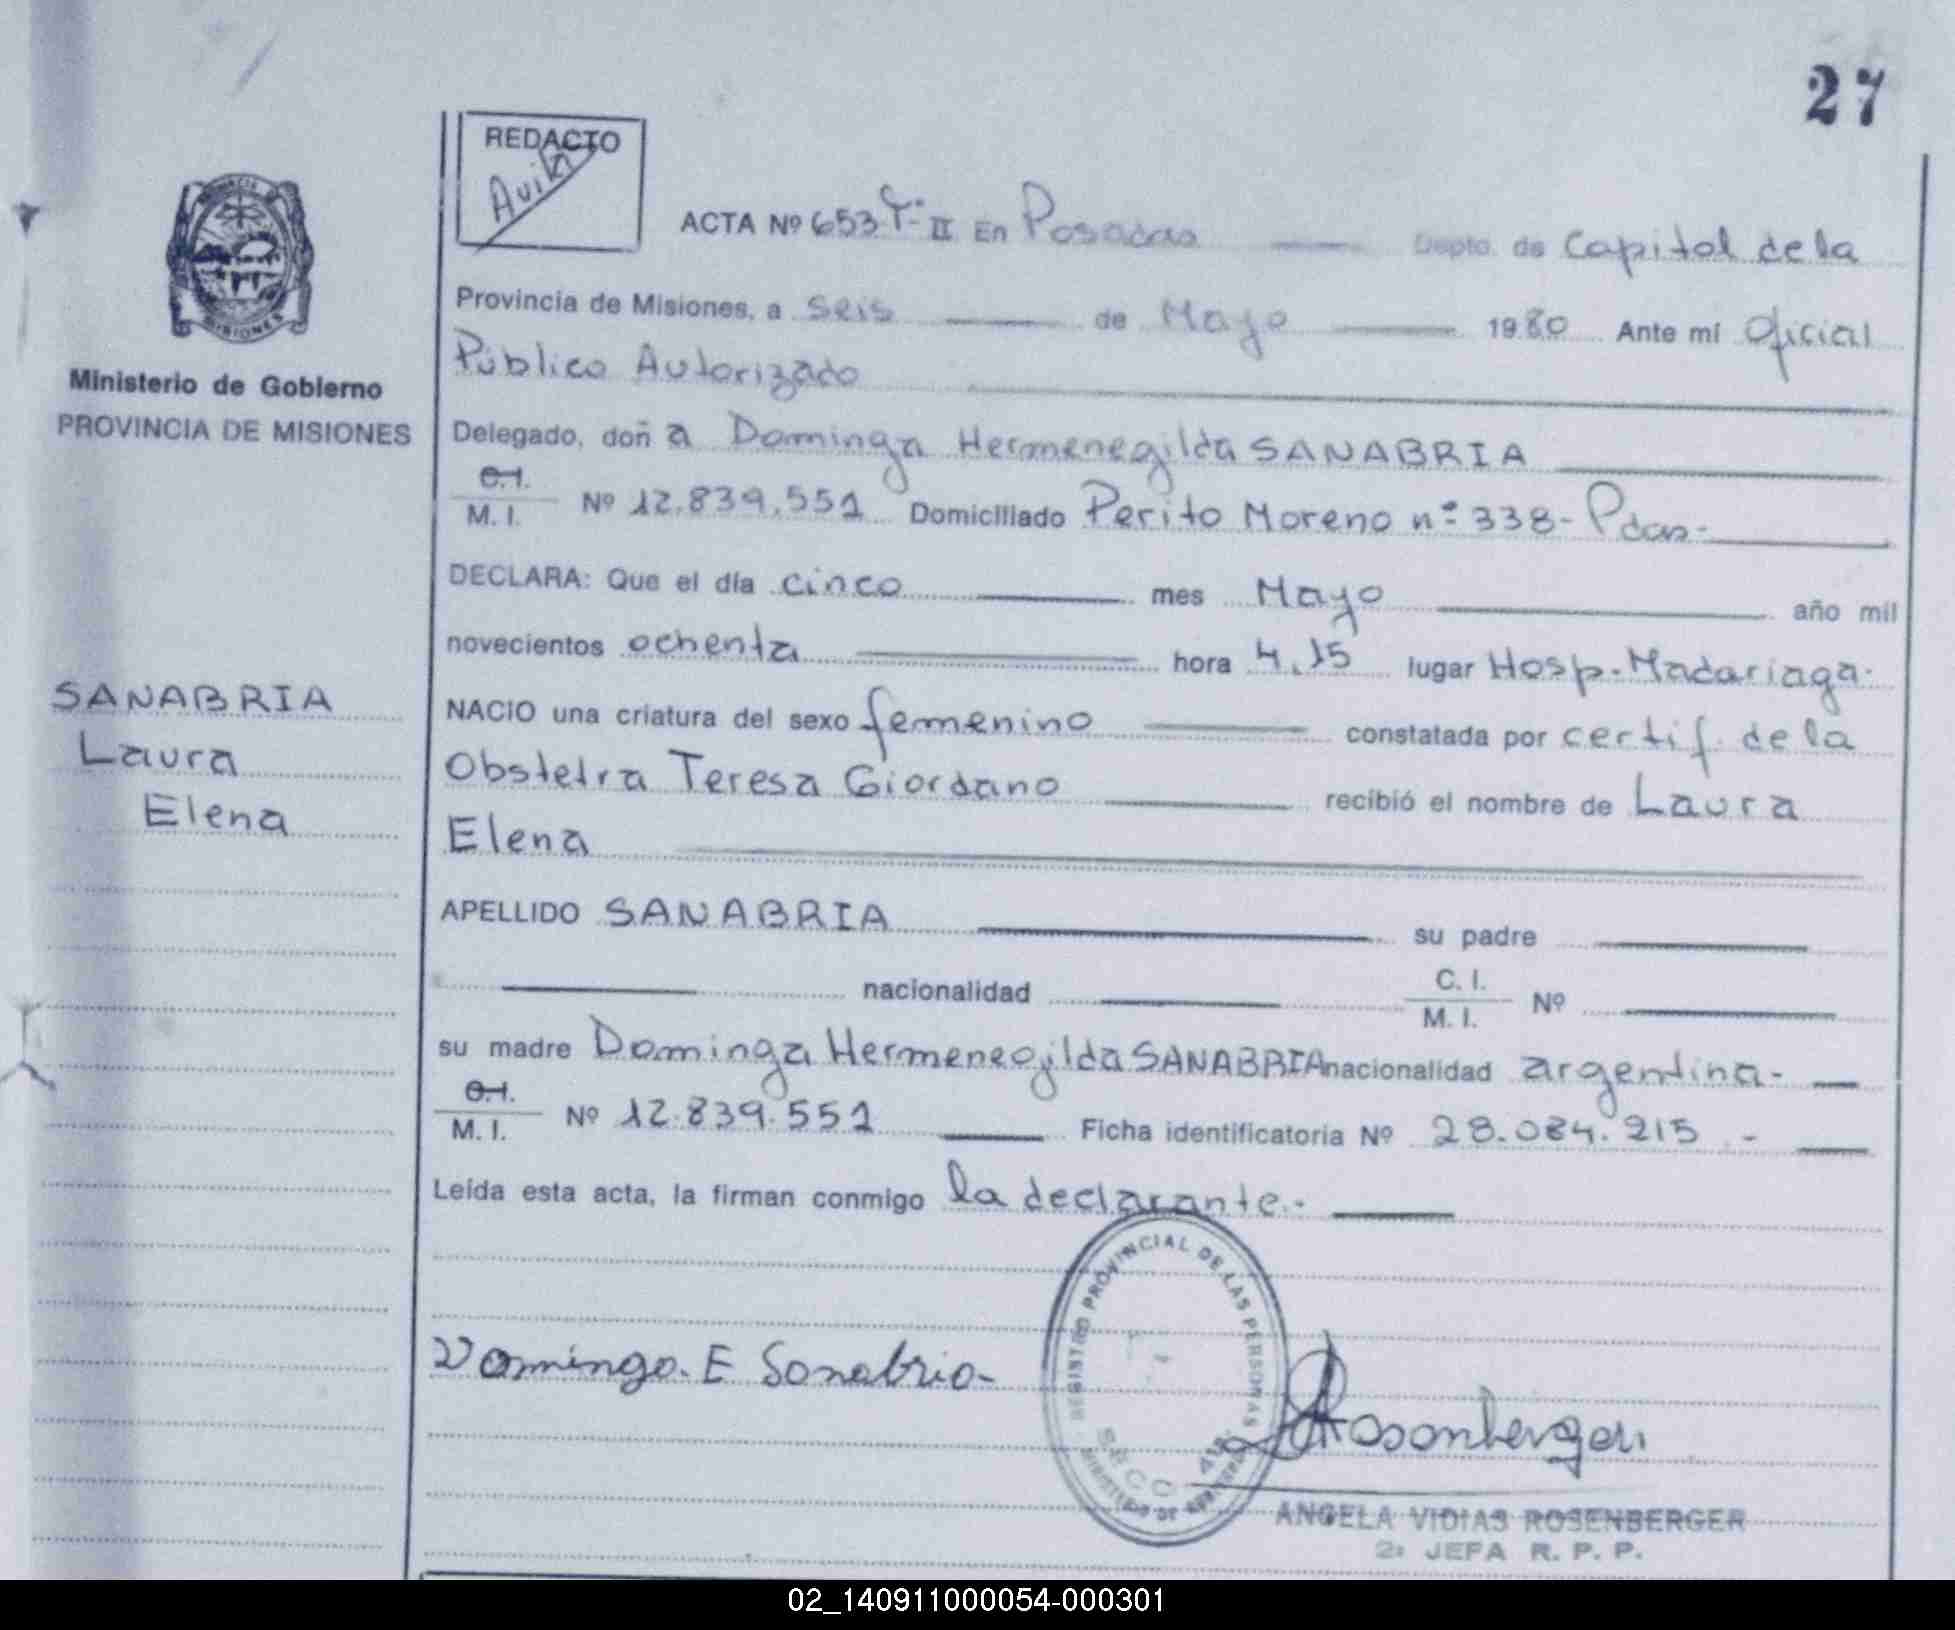 27
REDACTO
ACTA Nº 653 Tº II En Posadas Depto. de Capital de la
Provincia de Misiones, a seis de Mayo 1980 Ante mí Oficial
Público Autorizado
Ministerio de Gobierno
PROVINCIA DE MISIONES
MISIONES
Delegado, doña Dominga Hermenegilda SANABRIA
C.I.
M. I. Nº 12.839.551 Domiciliado Perito Moreno nº 338- Pdas-
DECLARA: Que el día cinco mes Mayo año mil
novecientos ochenta hora 4.15 lugar Hosp. Madariaga.
SANABRIA
Laura
Elena
NACIO una criatura del sexo femenino constatada por certif. de la
Obstetra Teresa Giordano recibió el nombre de Laura
Elena
APELLIDO SANABRIA su padre
nacionalidad C. I. M. I. Nº
su madre Dominga Hermenegilda SANABRIA nacionalidad argentina-
C.I.
M. I. Nº 12.839.551 Ficha identificatoria Nº 28.084.215 -
Leída esta acta, la firman conmigo la declarante.-
REGISTRO PROVINCIAL DE LAS PERSONAS
SECC.
Dominga. E Sanabria-
Rosenberger
ANGELA VIDIAS ROSENBERGER
2ª JEFA R. P. P.
02_140911000054-000301